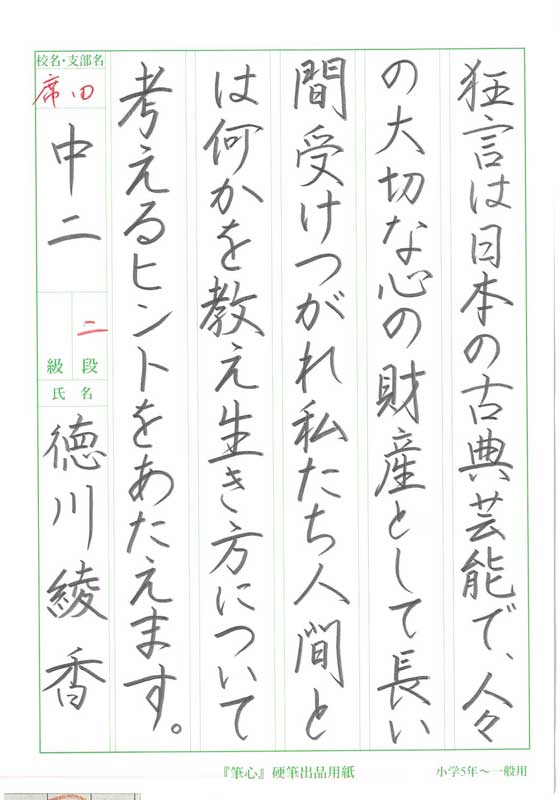 狂言は日本の古典芸能で、人々
の大切な心の財産として長い
間受けつがれ私たち人間と
は何かを教え生き方について
考えるヒントをあたえます。
校名・支部名
席田
中二
二
段
級
氏名
徳川綾香
『筆心』硬筆出品用紙
小学5年〜一般用